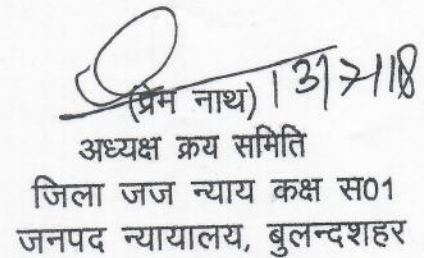 (प्रेम नाथ) 31/7/18
अध्यक्ष क्रय समिति
जिला जज न्याय कक्ष स01
जनपद न्यायालय, बुलन्दशहर